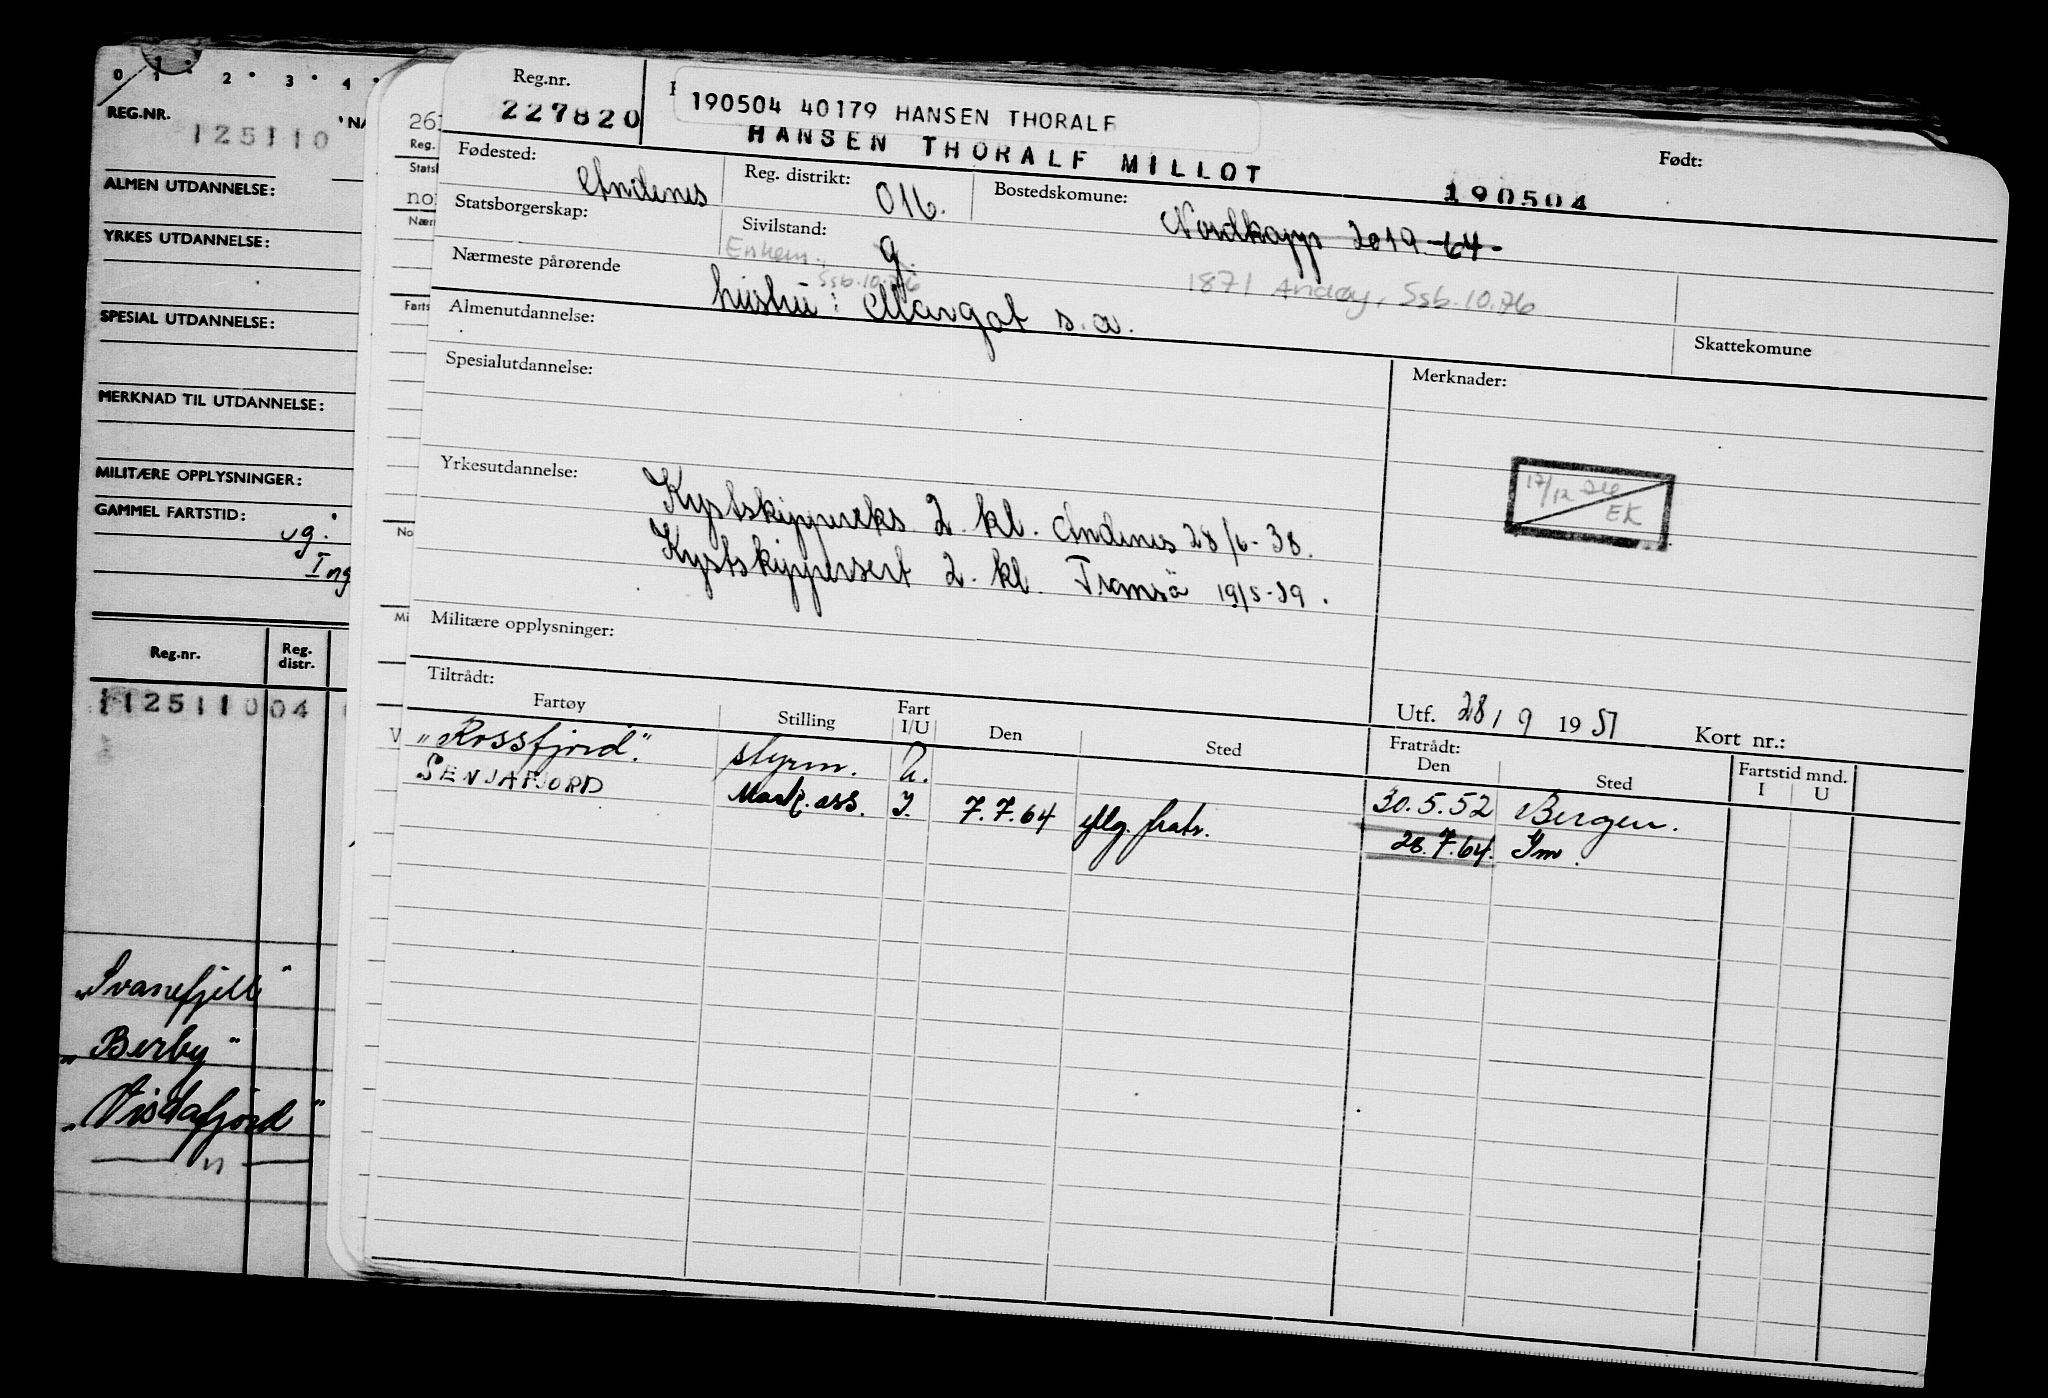 0 1 2 3 4
REG.NR.
125110
'NA
ALMEN UTDANNELSE:
YRKES UTDANNELSE:
SPESIAL UTDANNELSE:
MERKNAD TIL UTDANNELSE:
MILITÆRE OPPLYSNINGER:
GAMMEL FARTSTID:
ug.
Ing
Reg.nr. Reg. distr.
112511004
"Svanefjell"
"Berby"
"Visdafjord"
— " —
26
Reg.
Stats
no
Nær
Farts
No
Mi
V
Reg.nr.
227820
190504 40179 HANSEN THORALF
HANSEN THORALF MILLOT
Født:
190504
Fødested:
Andenes
Reg. distrikt:
016.
Bostedskomune:
Nordkapp 2019-64-
Statsborgerskap:
Sivilstand:
g.
Enkem., Ssb.10.76
1871 Andøy, Ssb.10.76
Nærmeste pårørende
hustru: Margot s.a.
Skattekomune
Almenutdannelse:
Spesialutdannelse:
Merknader:
17/12 76
EK
Yrkesutdannelse:
Kystskippereks 2. kl. Andenes 28/6-38.
Kystskippersert 2. kl. Tromsö 19/5-39.
Militære opplysninger:
Utf. 28/9 1951 Kort nr.:
Tiltrådt:
Fartøy Stilling Fart I/U Den Sted
Fratrådt:
Den Sted Fartstid mnd.
I U
"Rossfjord". styrm. U. 30.5.52 Bergen.
SENJAFJORD Mask. ass. I. 7.7.64 iflg. fratr. 28.7.64. Im.